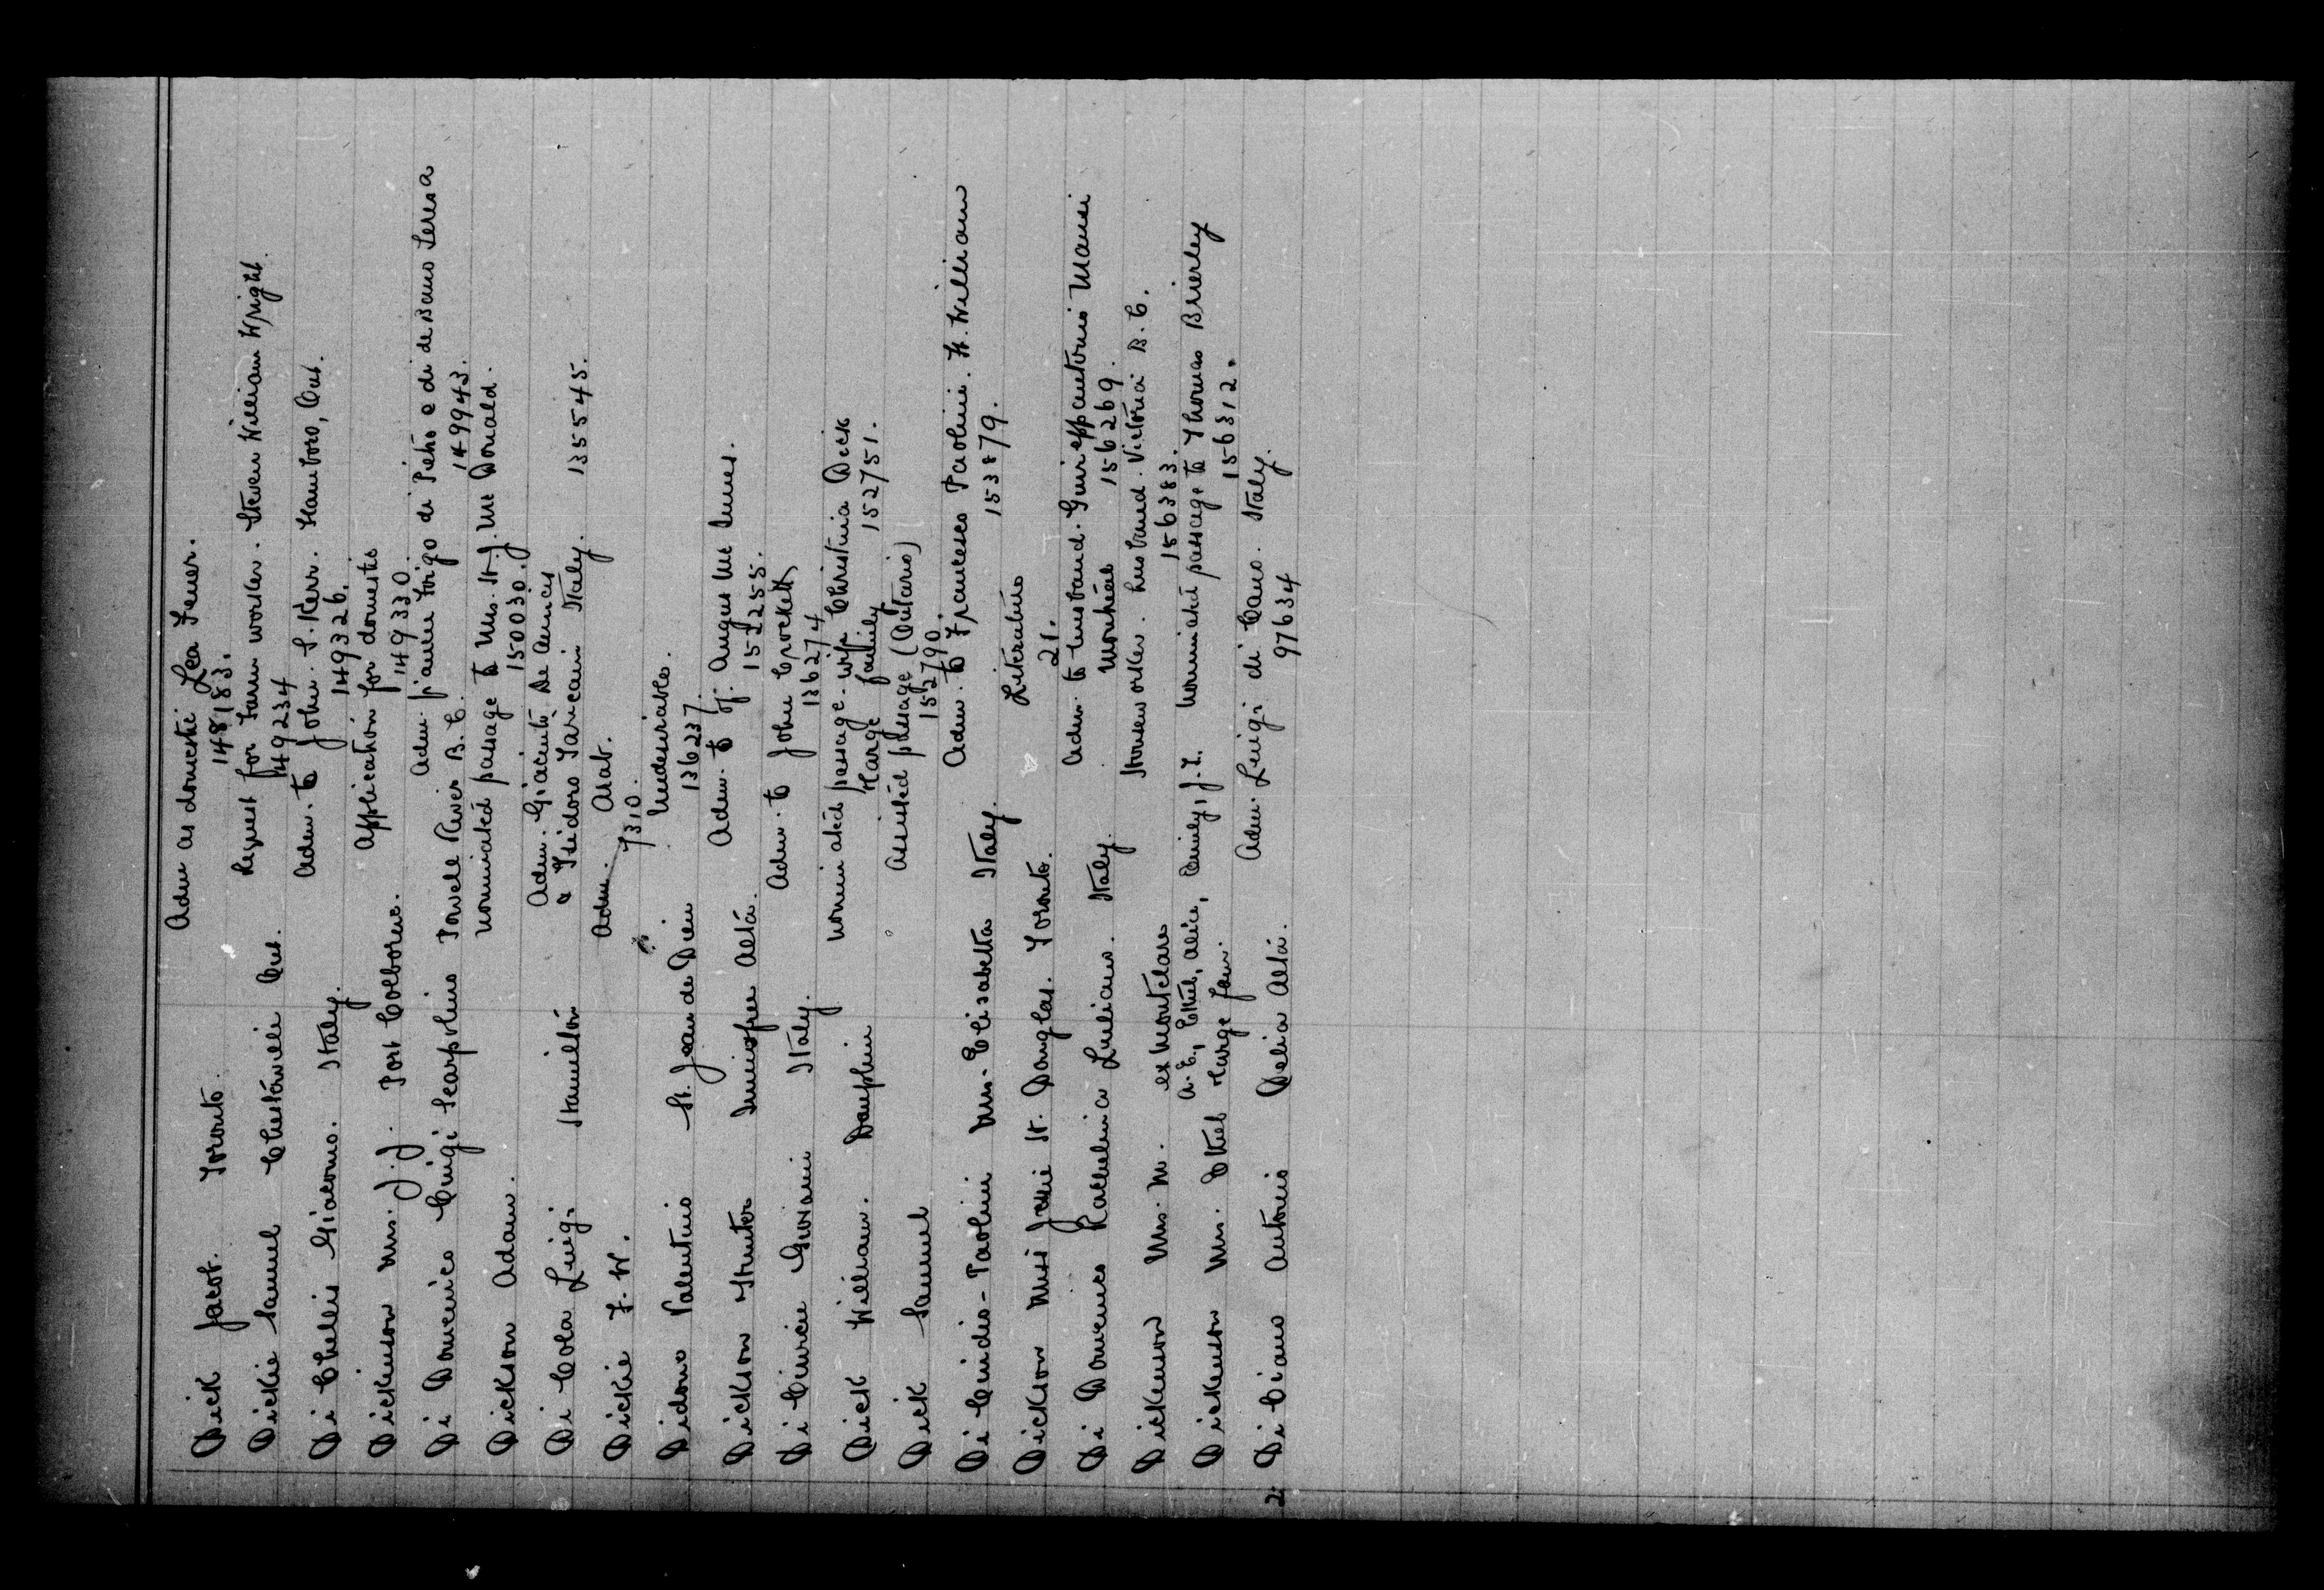 Dick Jacob. Toronto. Adm as domestic Lea Fener.
148183.
Dickie Samuel Chesterville Ont. Request for farm worker. Steven William Wright.
149234
Di Chellis Giacomo. Italy. Adm. to John S. Kerr. Hamboro, Ont.
149326.
Dickenson Mrs. J. J. Port Colborne. Application for domestic
149330
Di Domenico Luigi Scarpolino Powell River B.C. Adm. fiancee Frigo di Pietro e di de Bano Teresa
149943.
Dickson Adam. Nominated passage to Mrs. H. J. Mc Donald.
150030.
Di Cola Luigi Hamilton Adm. Giacinto De Amicis
& Isidoro Taricani Italy. 135545.
Dickie F. W. Adm. Asat.
7310.
Didono Valentino St. Jean de Dieu Undesirable.
136237.
Dickson Hunter Innisfree Alta. Adm. to J. Angus Mc Innes.
152255.
Di Cinrcie Giovanni Italy. Adm. to John Crockett
136274
Dick William. Dauphin Nominated passage. wife Christina Dick
Marge family 152751.
Dick Samuel Assisted passage (Ontario)
152790.
Di Cuidio - Paolini Mrs. Elisabetta Italy. Adm. to Francesco Paolini. Ft. William
153879.
Dickson Miss Jessie St. Douglas. Toronto. Literature
21.
Di Domenico Rachelina Luliano. Italy. Adm. to husband. Guiseppantonio Mansi
Montreal 156269.
Dickenson Mrs. M. ex Montclare Houseworker. husband. Victoria B.C.
156383.
Dickenson Mrs. Ethel A. E., Ethel, Alice, Emily, J. T. Nominated passage to Thomas Brierley
Marge fam. 156312.
2. Di Ciano Antonio Delia Alta. Adm. Luigi di Cano. Italy.
97634